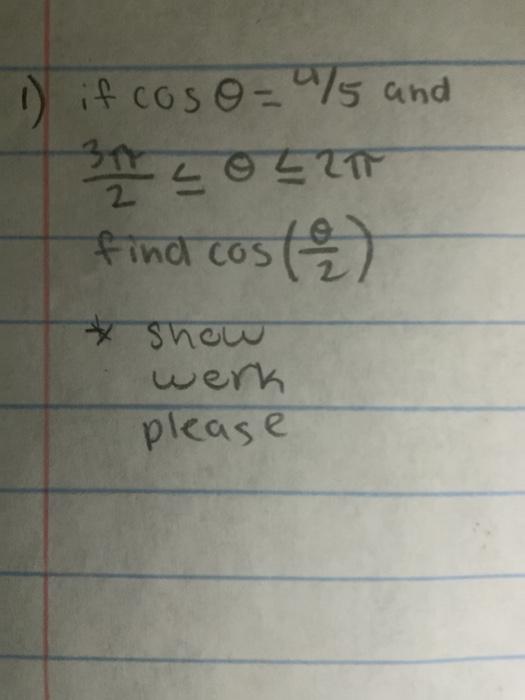 1) if cos θ = 4/5 and
3π/2 ≤ θ ≤ 2π
find cos(θ/2)
* show
werk
please